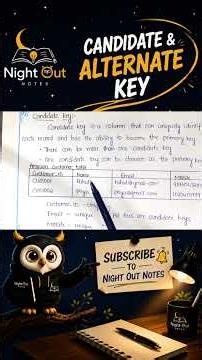 Night Out
NOTES
CANDIDATE &
ALTERNATE
KEY
Candidate key:-
Candidate key is a column that can uniquely identify
each record and has the ability to become the primary key
• There can be more than one candidate key
• One candidate key can be chosen as the primary key
Customer table
Customer_ID Name Email Mobile
CUS001 Rahul rahul@gmail.com
CUS002 Priya priya@gmail.com
Customer_ID -
Email - unique All this are candidate keys
Mobile - unique
SUBSCRIBE
TO
NIGHT OUT NOTES
Night Out
NOTES